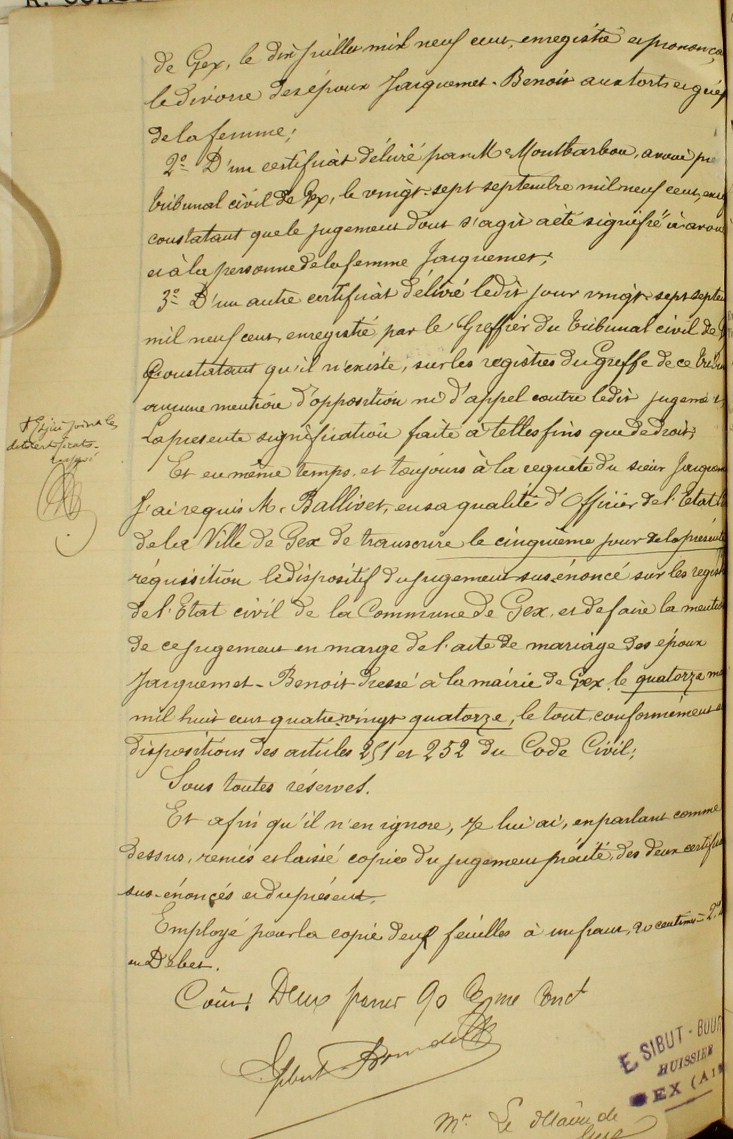 de Gex, le dix juillet mil neuf cent, enregistré et prononça
le divorce des époux Jacquemet-Benoit aux torts et grie
de la femme;
2o- D'un certificat délivré par Me Montbarbon, avoué pr
tribunal civil de Gex, le vingt-sept septembre mil neuf cent, enr
constatant que le jugement dont s'agit a été signifié à avou
et à la personne de la femme Jacquemet;
3o- D'un autre certificat délivré ledit jour vingt-sept septem
mil neuf cent, enregistré, par le Greffier du tribunal civil de G
Constatant qu'il n'existe, sur les registres du Greffe de ce tribun
aucune mention d'opposition ni d'appel contre ledit jugement
La présente signification faite à telles fins que de droit;
Et en même temps, et toujours à la requête du sieur Jacquem
J'ai requis M. Ballivet, en sa qualité d'Officier de l'Etat
de la Ville de Gex de transcrire le cinquième jour de la présente
réquisition le dispositif du jugement sus-énoncé sur les regist
de l'Etat civil de la Commune de Gex, et de faire la mention
de ce jugement en marge de l'acte de mariage des époux
Jacquemet-Benoit dressé à la mairie de Gex, le quatorze m
mil huit cent quatre-vingt quatorze, le tout conformément
dispositions des articles 251 et 252 du Code Civil;
Sous toutes réserves.
Et afin qu'il n'en ignore, je lui ai, en parlant comme
dessus, remis et laissé copie du jugement précité, des deux certifi
sus-énoncés et du présent.
Employé pour la copie deux feuilles à un franc, 20 centimes = 2.
en Débet.
Coût: Deux francs 90
Sibut-Bourde
E. SIBUT-BOUR
HUISSIER
GEX (AI
Mr Le Maire de